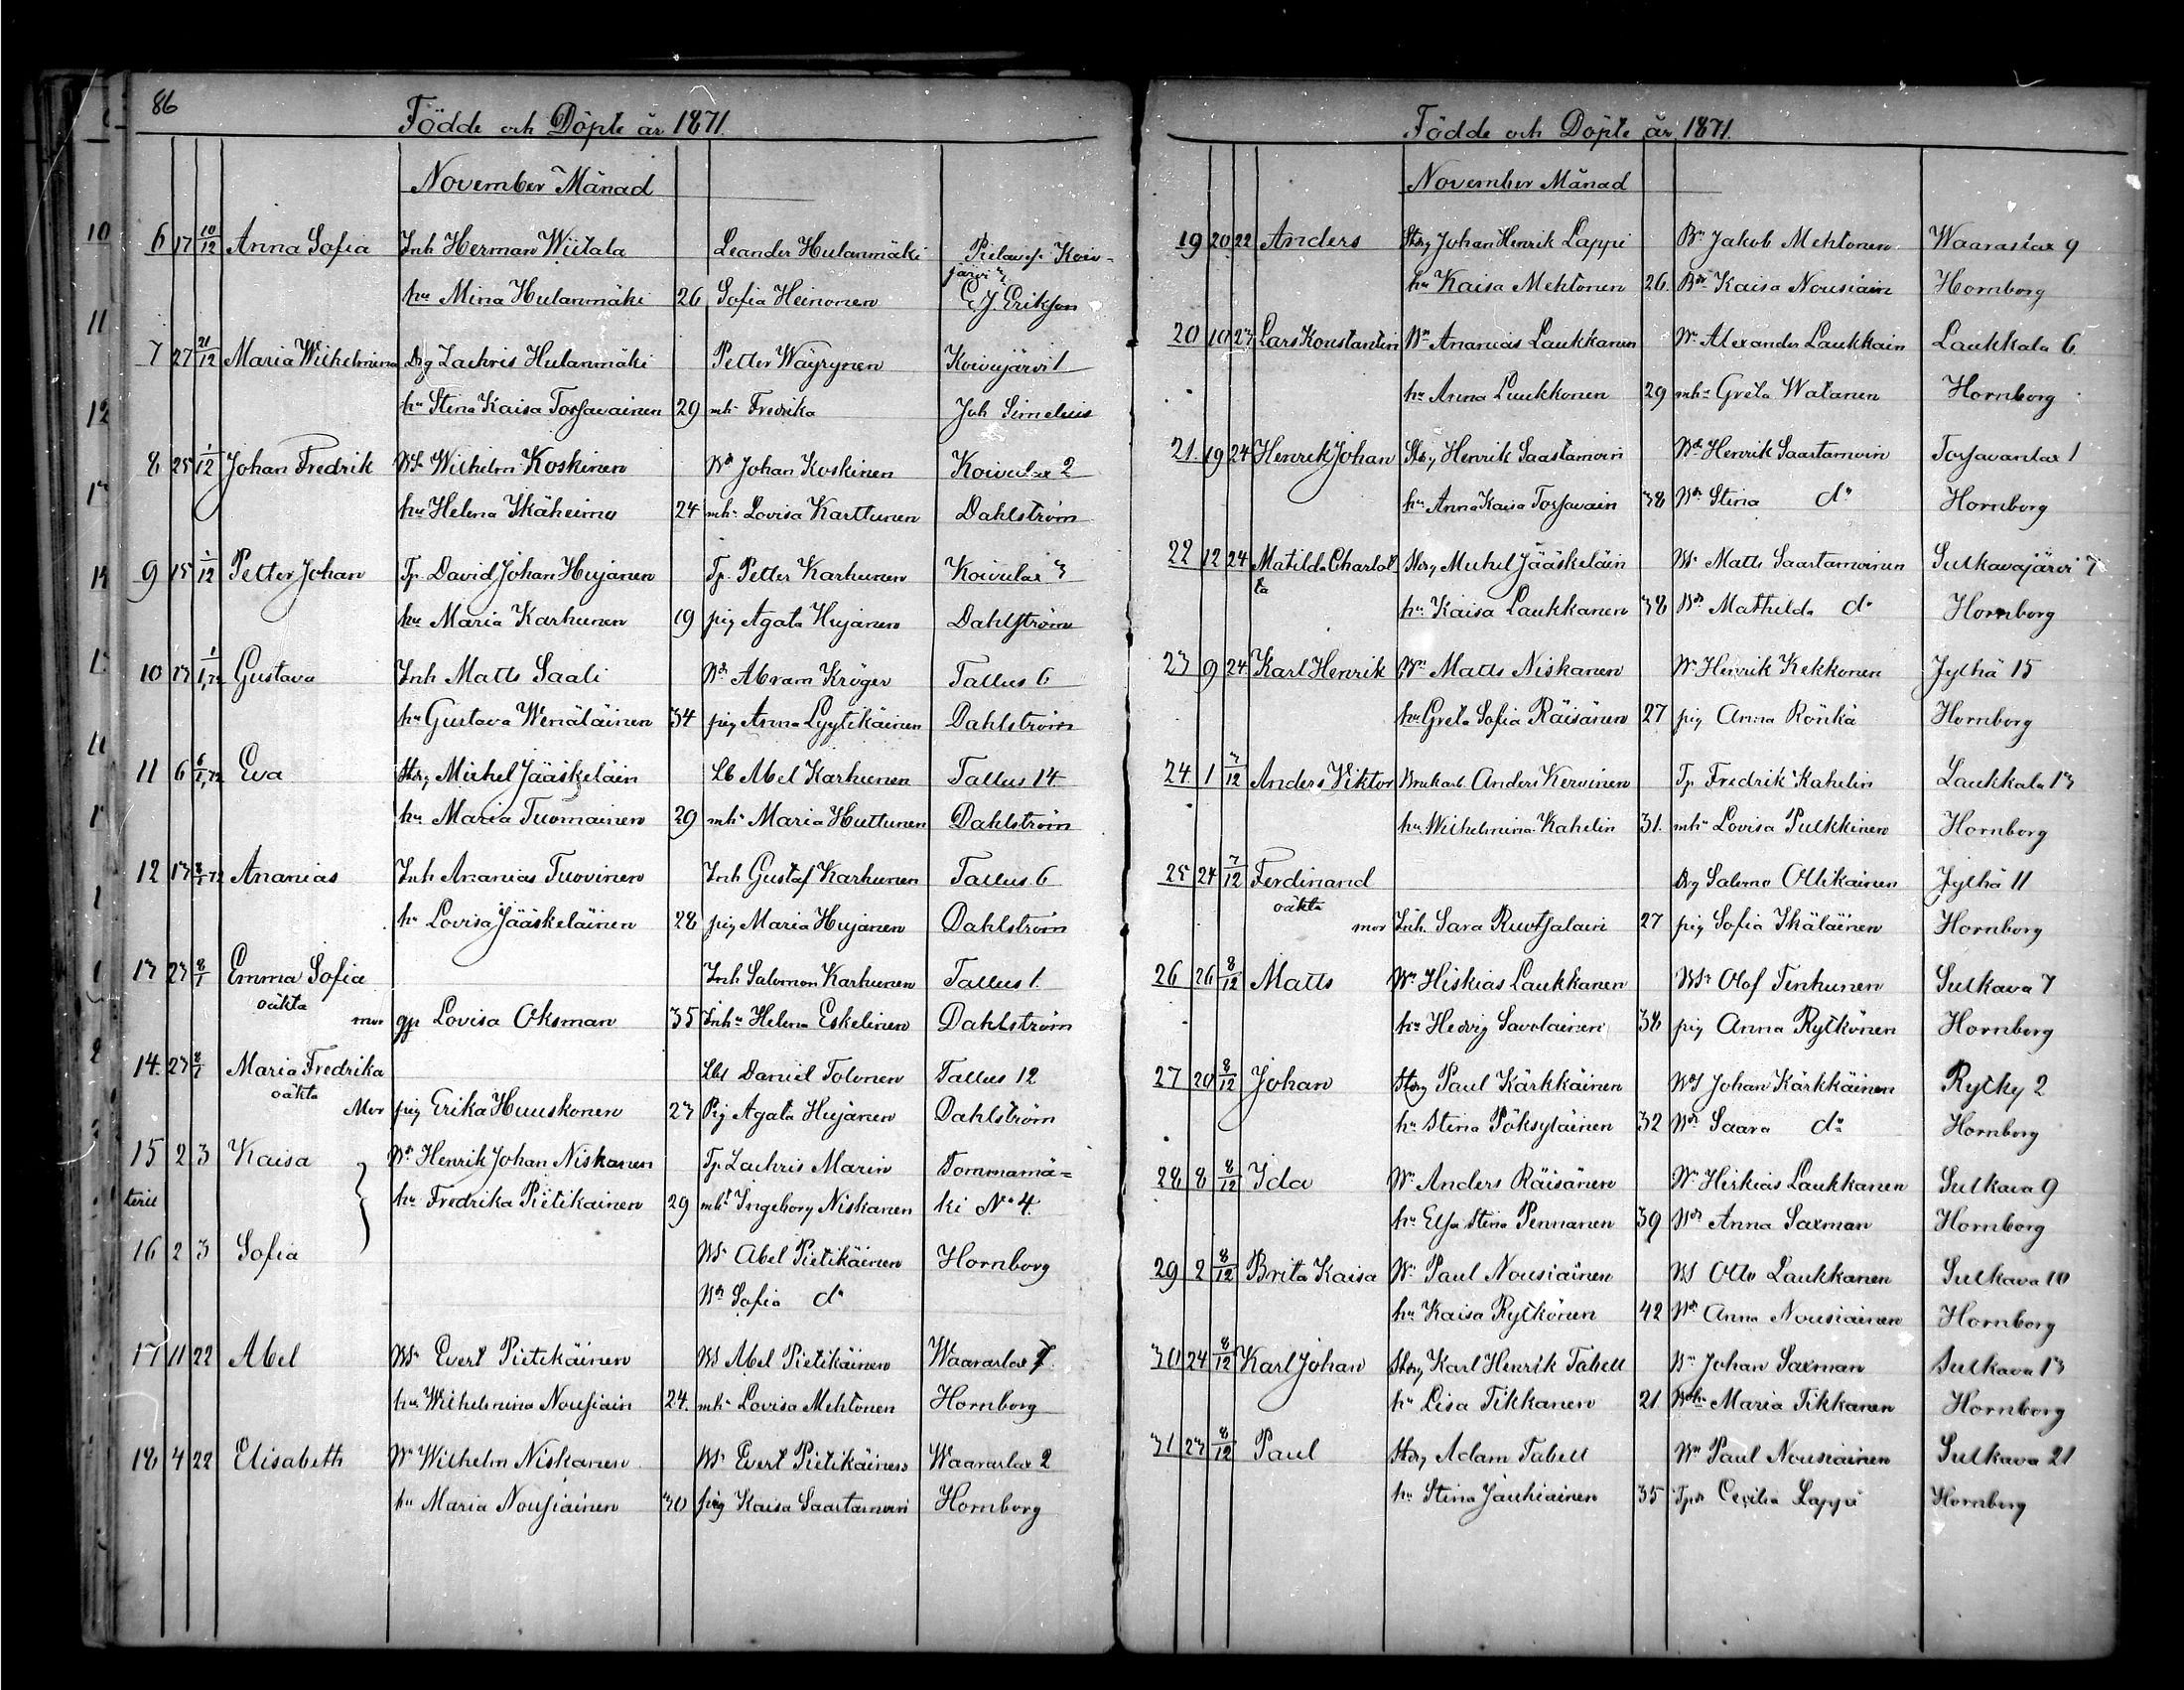 86
Födde och Döpte år 1871.
November Månad
6 17 10/12 Anna Sofia Inh Herman Wiitala Leander Hulanmäki Pielavesi Koiv-
järvi
hu Mina Hulanmäki 26 Sofia Heinonen E. J. Erikson
7 27 21/12 Maria Wilhelmina Drg Zachris Hulanmäki Petter Wäyrynen Koivujärvi 1
hu Stina Kaisa Torsavainen 29 mh Fredrika Joh Simelius
8 25 1/12 Johan Fredrik Ws Wilhelm Koskinen Wd Johan Koskinen Koivulax 2
hu Helena Ikäheimo 24 mh Lovisa Karttunen Dahlström
9 15 1/12 Petter Johan Tp. David Johan Hujanen Tp. Petter Karhunen Koivulax 3
hu Maria Karhunen 19 pig Agata Hujanen Dahlström
10 13 1/1,72 Gustava Inh Matts Saali Wd Abram Kröger Tallus 6
hu Gustava Wenäläinen 34 pig Anna Lyytikäinen Dahlström
11 6 6/1,72 Eva Storp Michel Jääskeläin Lb Abel Karhunen Tallus 14
hu Maria Tuomainen 29 mh Maria Huttunen Dahlström
12 13 8/1 72 Ananias Inh Ananias Tuovinen Inh Gustaf Karhunen Tallus 6
hu Lovisa Jääskeläinen 28 pig Maria Hujanen Dahlström
13 23 8/1 Emma Sofia Inh Salomon Karhunen Tallus 1.
oäkta mor gp Lovisa Oksman 35 Inhu Helena Eskelinen Dahlström
14. 23 8/1 Maria Fredrika Lbs Daniel Tolonen Tallus 12
oäkta Mor pig Erika Huuskonen 23 Pig Agata Hujanen Dahlström
15 2 3 Kaisa Wn Henrik Johan Niskanen Tp. Zachris Marin Tommamä=
hu Fredrika Pietikainen 29 mh Ingeborg Niskanen ki No 4.
16 2 3 Sofia Ws Abel Pietikäinen Hornborg
Wdr Sofia do
17 11 22 Abel Ws Evert Pietikäinen Ws Abel Pietikäinen Waararlax 7
hu Wilhelmina Nousiain 24. mh Lovisa Mehtonen Hornborg
18 4 22 Elisabeth Wn Wilhelm Niskanen Ws Evert Pietikäinen Waararlax 2
hu Maria Nousiainen 30 pig Kaisa Saastamoin Hornborg
Födde och Döpte år 1871.
November Månad
19 20 22 Anders Storp Johan Henrik Lappi Bn Jakob Mehtonen Waaraslax 9
hu Kaisa Mehtonen 26. Bdr Kaisa Nousiain Hornborg
20 10 23 Lars Konstantin Wn Ananias Laukkanen Wn Alexander Laukkain Laukkala 6
hu Anna Luukkonen 29 mh Greta Watanen Hornborg
21. 19 24 Henrik Johan Storp Henrik Saastamoin Wd Henrik Saastamoin Torsavanlax 1
hu Anna Kaisa Torsavain 38 Wdr Stina do Hornborg
22 12 24 Matilda Charlot Storp Michel Jääskeläin Ws Matts Saastamoinen Sulkavajärvi 7
ta
hu Kaisa Laukkanen 38 Wdr Mathilda do Hornborg
23 9 24 Karl Henrik Wn Matts Niskanen Wn Henrik Kekkonen Jylhä 15
hu Greta Sofia Räisänen 27 pig Anna Rönkä Hornborg
24. 1 3/12 Anders Viktor Brukarb. Anders Kervinen Tp Fredrik Kahelin Laukkala 13
hu Wilhelmina Kahelin 31. mh Lovisa Pulkkinen Hornborg
25 24 7/12 Ferdinand Drg Salomo Ollikainen Jylhä 11
oäkta mor Inh. Sara Ruotsalain 27 pig Sofia Ikäläinen Hornborg
26 26 8/12 Matts Wn Hiskias Laukkanen Ws Olof Tenhunen Sulkava 7
hu Hedvig Savolainen 38 pig Anna Rytkönen Hornborg
27 20 8/12 Johan Storp Paul Kärkkäinen Wd Johan Kärkkäinen Rytky 2
hu Stina Pöksyläinen 32 Wdr Saara do Hornborg
28 8 8/12 Ida Wn Anders Räisänen Wn Hiskias Laukkanen Sulkava 9
hu Elsa Stina Pennanen 39 Wdr Anna Saxman Hornborg
29 2 8/12 Brita Kaisa Wn Paul Nousiainen Ws Otto Laukkanen Sulkava 10
hu Kaisa Rytkönen 42 Wdr Anna Nousiainen Hornborg
30 24 8/12 Karl Johan Storp Karl Henrik Tabell Bn Johan Saxman Sulkava 13
hu Lisa Tikkanen 21 Maria Tikkanen Hornborg
31 23 8/12 Paul Storp Adam Tabell Wn Paul Nousiainen Sulkava 21
hu Stina Jauhiainen 35 Cecilia Lappi Hornborg